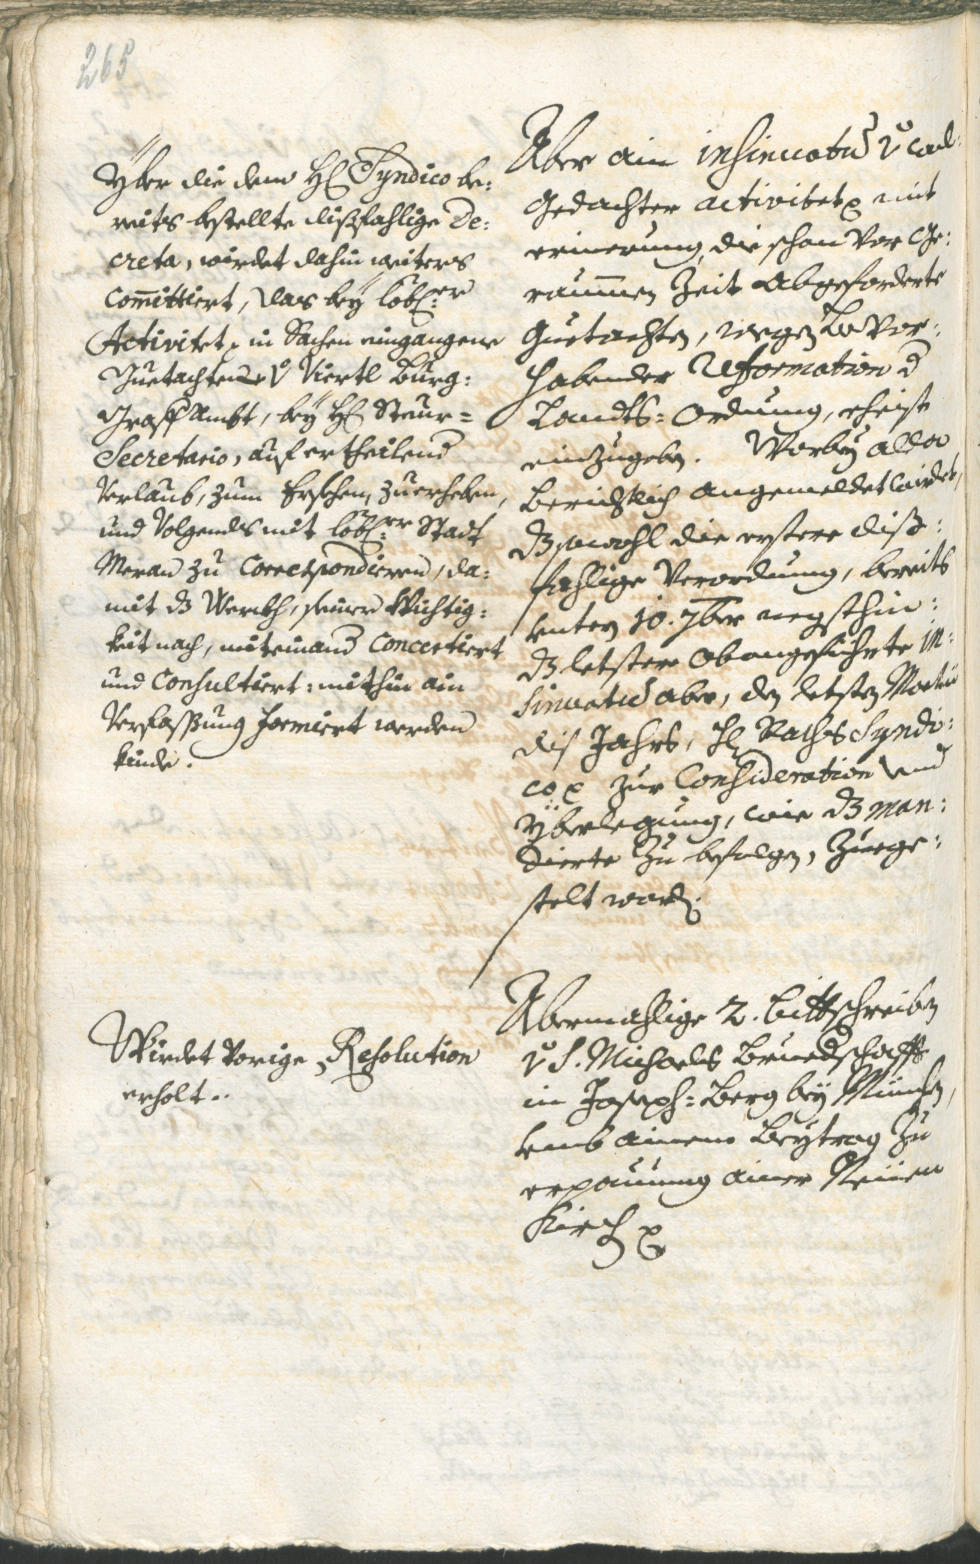 265
Yber die dem H: Syndico be:
reits bestellte dißfahlige De:
creta, wirdet dahin weiters
Committiert, das bey löbl:er
Activitet, in Sachen eingangene
Guetachten Viertl Burg:
Graff Ambt, bey H: Steur=
Secretario, auf ertheilend
Verlaub, zum Ersehen, zuerheben,
und Volgends mit löbl:er Statt
Meran zu Correspondieren, da:
mit dz Werckh, seiner Wichtig:
keit nach, miteinand Concertiert
und Consultiert: mithin ain
Verfassung formiert werden
kinde.
Wirdet Vorige Resolution
erholt..
Aber ain insinuatum v wol:
Gedachter Activitet mit
erinerung, die schon Vor Ge:
raummen Zeit Abgeforderte
Guetachten, wegen Bevor:
habender Reformation d
Landts=Ordnung, eheist
einzugeben. Worbey alda
Berichtlich angemeldet wirdet,
dz sowohl die erstere diß:
fahlige Verordnung, bereits
unter 10. 7ber negsthin:
dz letstere obangeführte in:
sinuatum aber, den letsten Martii
dis Jahrs, H: Raths Syndi:
co zur Consideration und
Yberlegung, wie dz man:
dierte zu befolgen, Zuege:
stelt worden.
Abermahlige 2. bittschreiben
v S. Michaels Bruedschafft
in Joseph=Berg bey München,
umb ainem Beytrag zu
erpauung ainer Neüen
Kirch